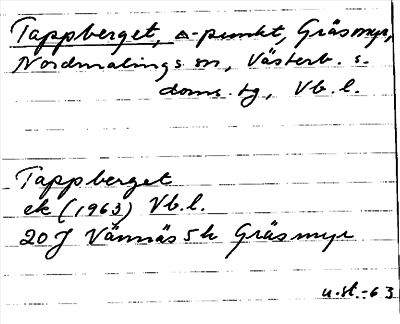 Tappberget, △-punkt, Gräsmyr,
Nordmalings sn, Västerb. s.
doms. tg, Vb. l.
Tappberget
ek (1963) Vb. l.
20J Vännäs 5h Gräsmyr
u.st.-63